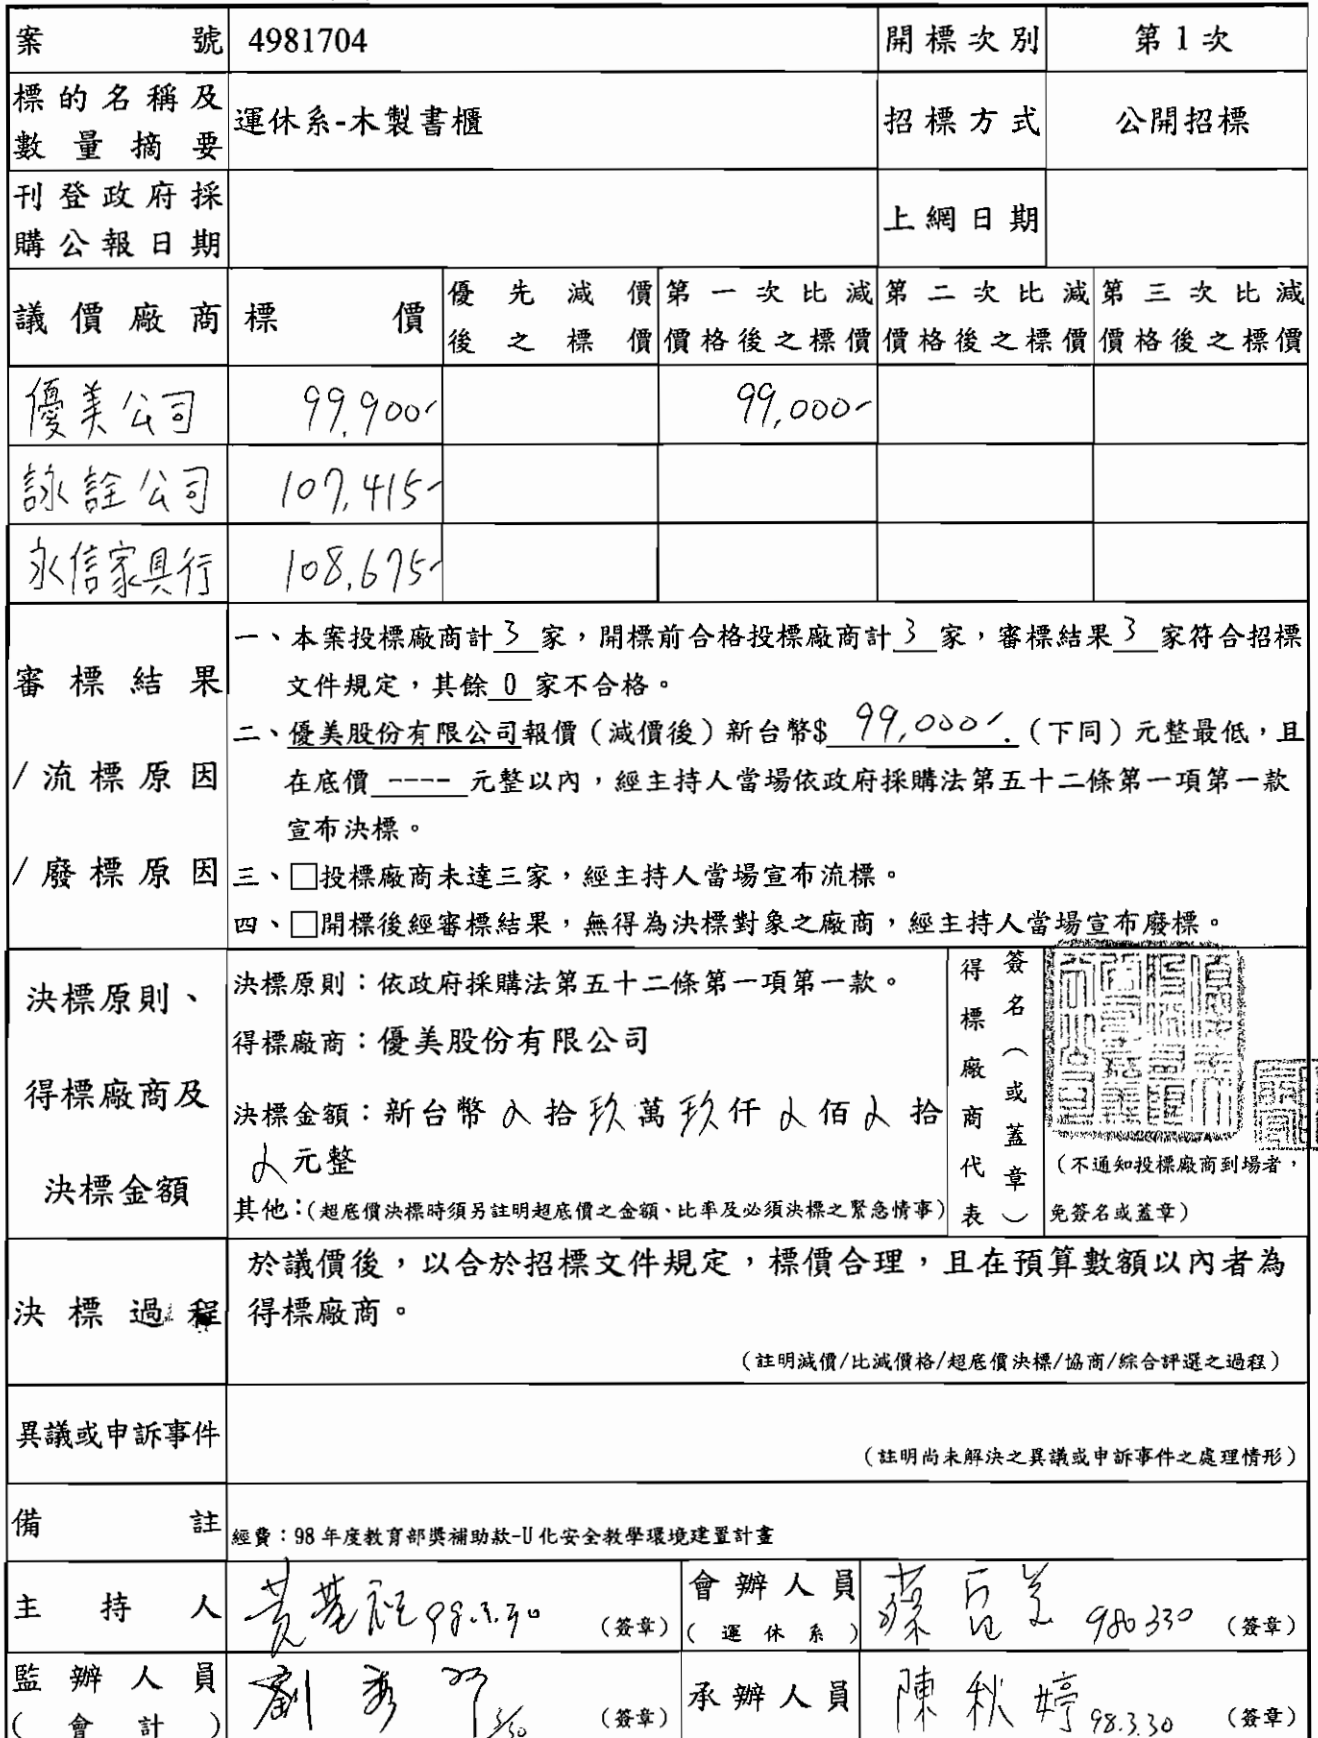 案號 4981704 開標次別 第1次
標的名稱及
數量摘要 運休系-木製書櫃 招標方式 公開招標
刊登政府採
購公報日期 上網日期
議價廠商 標價 優先減價 第一次比減 第二次比減 第三次比減
後之標價 價格後之標價 價格後之標價 價格後之標價
優美公司 99,900 99,000
詠詮公司 107,415
永信家具行 108,675
審標結果
/流標原因
/廢標原因
一、本案投標廠商計 3 家，開標前合格投標廠商計 3 家，審標結果 3 家符合招標
文件規定，其餘 0 家不合格。
二、優美股份有限公司報價（減價後）新台幣$ 99,000 （下同）元整最低，且
在底價 ---- 元整以內，經主持人當場依政府採購法第五十二條第一項第一款
宣布決標。
三、□投標廠商未達三家，經主持人當場宣布流標。
四、□開標後經審標結果，無得為決標對象之廠商，經主持人當場宣布廢標。
決標原則、
得標廠商及
決標金額
決標原則：依政府採購法第五十二條第一項第一款。
得標廠商：優美股份有限公司
決標金額：新台幣 拾玖萬玖仟 佰 拾
元整
其他：（超底價決標時須另註明超底價之金額、比率及必須決標之緊急情事）
得標廠商代表
簽名（或蓋章）
（不通知投標廠商到場者，
免簽名或蓋章）
決標過程 於議價後，以合於招標文件規定，標價合理，且在預算數額以內者為
得標廠商。
（註明減價/比減價格/超底價決標/協商/綜合評選之過程）
異議或申訴事件
（註明尚未解決之異議或申訴事件之處理情形）
備註 經費：98年度教育部獎補助款-U化安全教學環境建置計畫
主持人 98.3.30 （簽章） 會辦人員
（運休系） 980330 （簽章）
監辦人員
（會計） 劉秀 3/30 （簽章） 承辦人員 陳秋婷 98.3.30 （簽章）